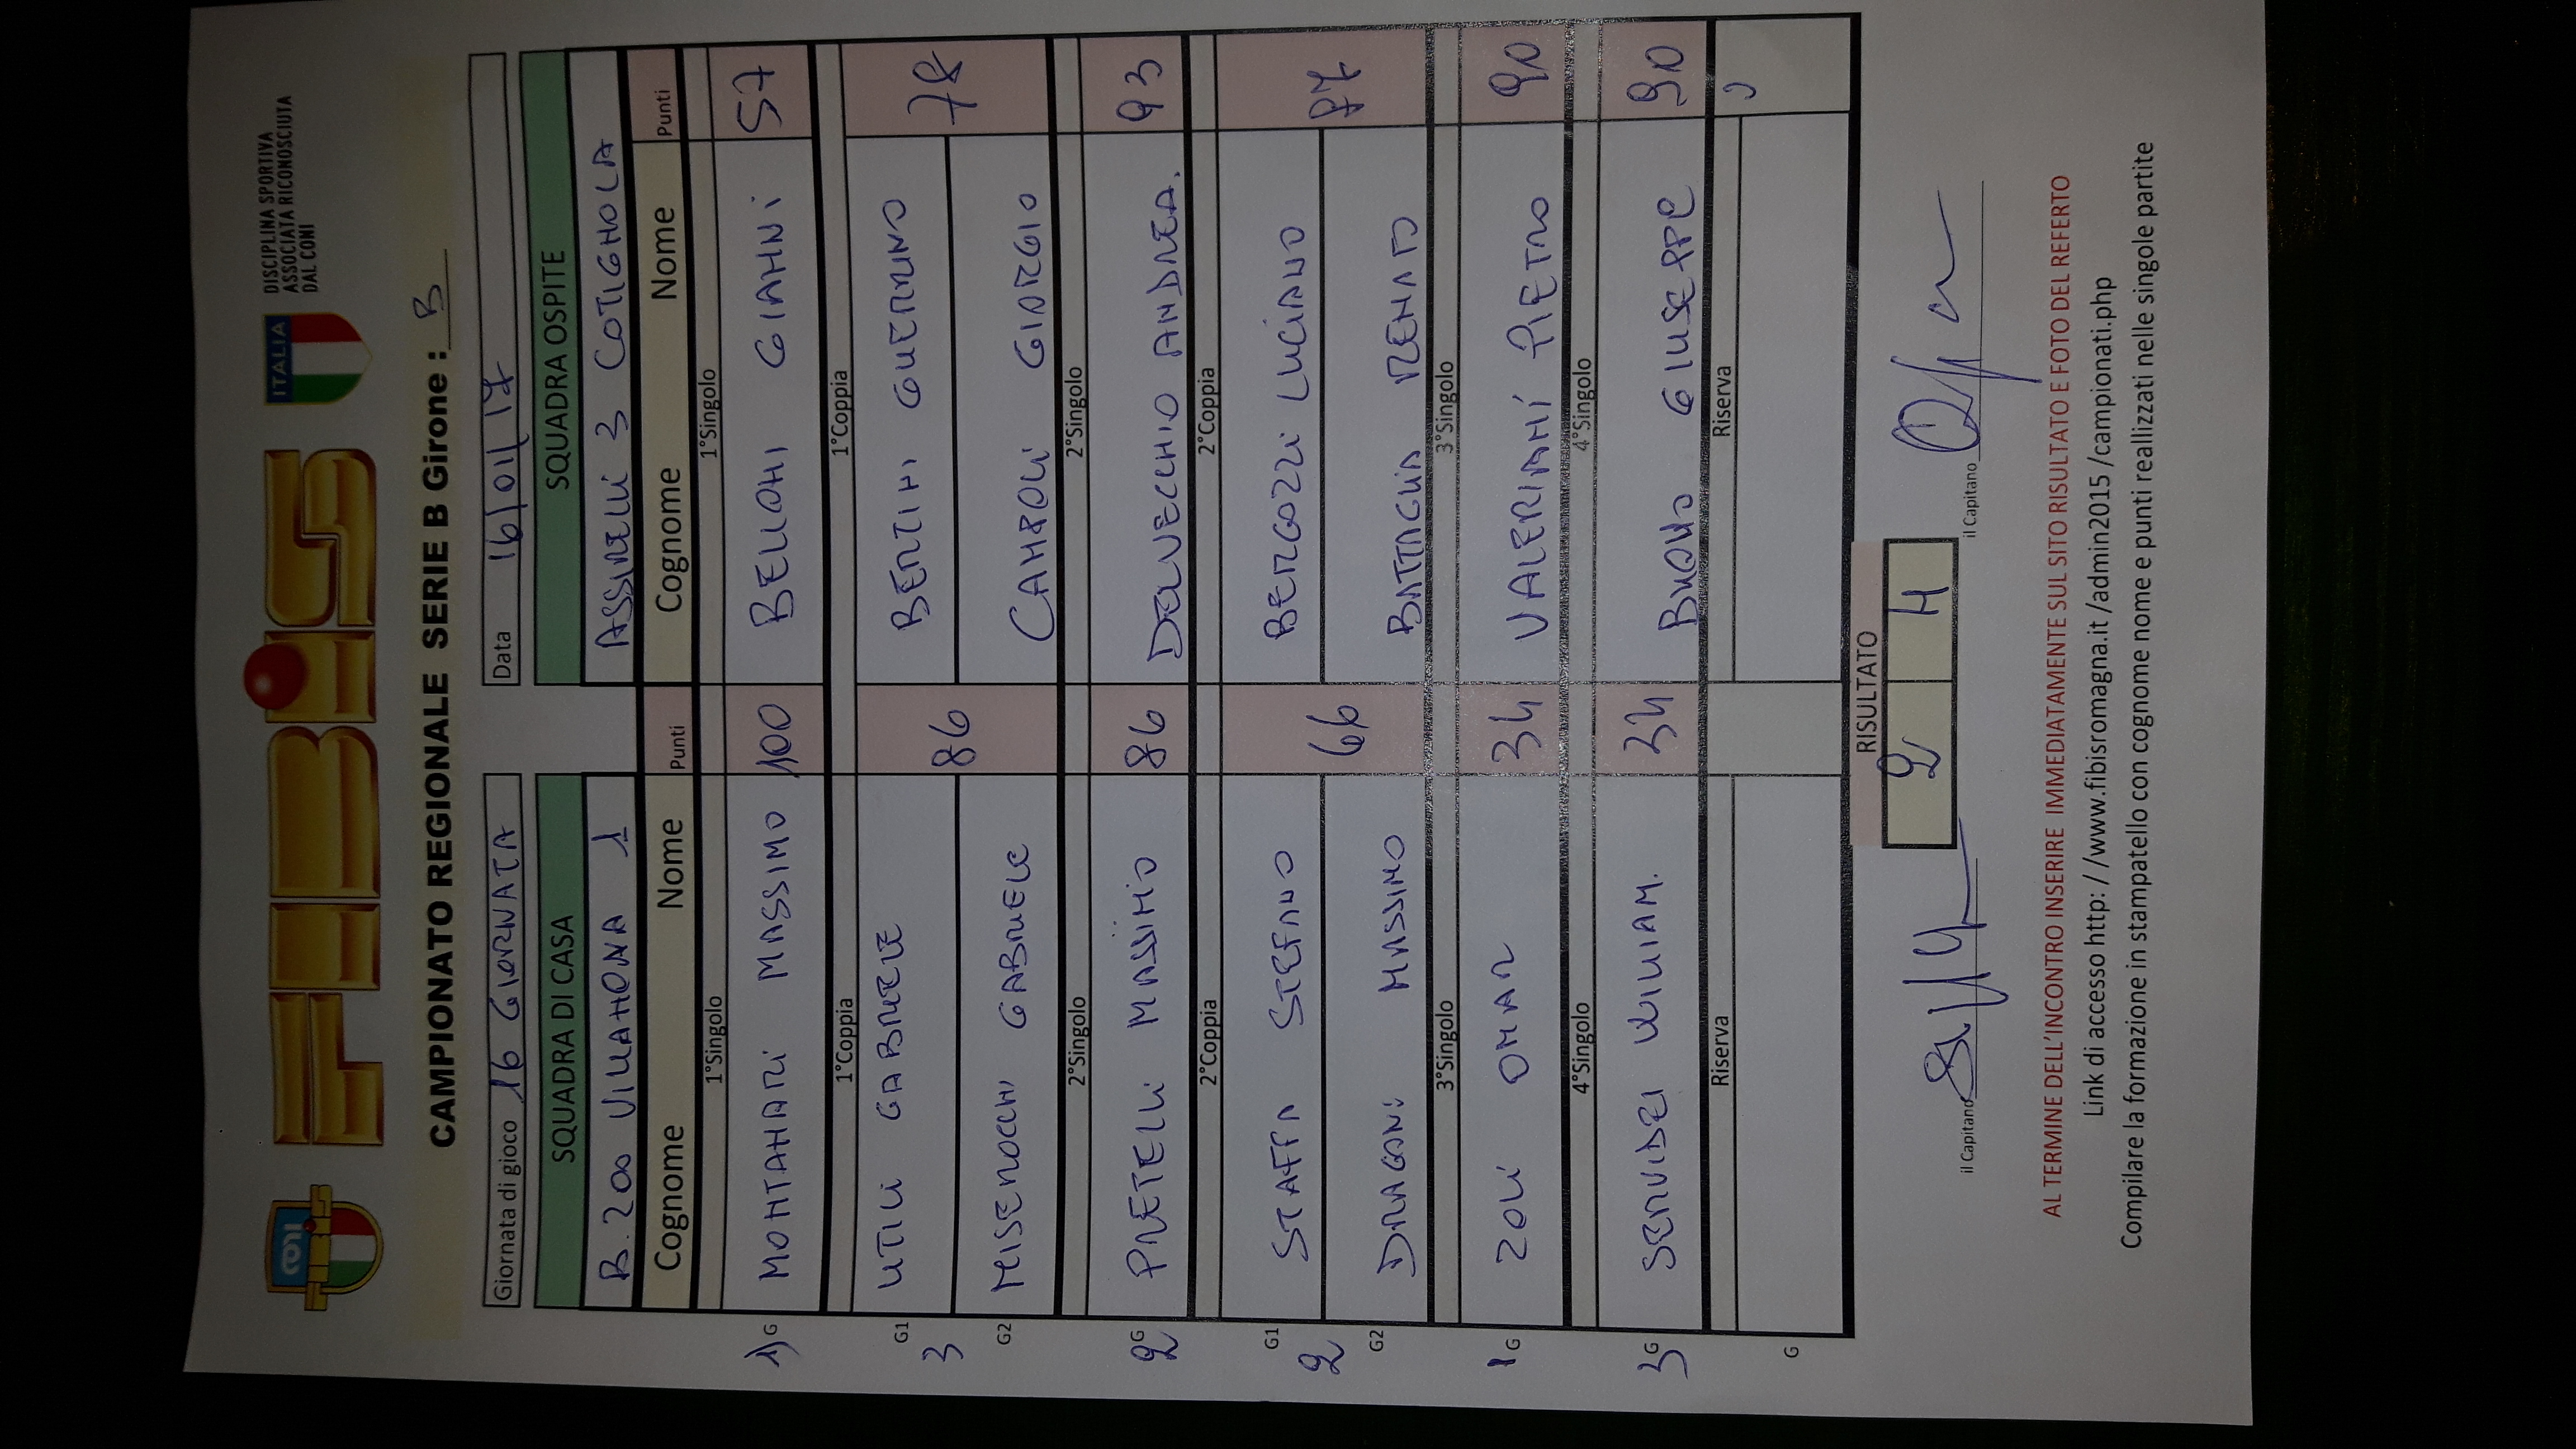 CONI
FIBiS
ITALIA
DISCIPLINA SPORTIVA
ASSOCIATA RICONOSCIUTA
DAL CONI
CAMPIONATO REGIONALE SERIE B Girone : B
Giornata di gioco 16 GIORNATA Data 16/01/17
SQUADRA DI CASA SQUADRA OSPITE
B. 200 VILLANOVA 1 ASSIRELLI 3 COTIGNOLA
Cognome Nome Punti Cognome Nome Punti
1°Singolo 1°Singolo
1) G MONTANARI MASSIMO 100 BELLONI GIANNI 57
1°Coppia 1°Coppia
G1 UTILI GABRIELE BENTINI GUERRINO
3 86 78
G2 MISEROCCHI GABRIELE CAMPOLI GIORGIO
2°Singolo 2°Singolo
2 G PRETELLI MASSIMO 86 DELVECCHIO ANDREA. 93
2°Coppia 2°Coppia
G1 STAFFA STEFANO BERGOZZI LUCIANO
2 66
G2 DRAGONI MASSIMO BATTAGLIA RENATO
3°Singolo 3°Singolo
1 G ZOLI OMAR 34 VALERIANI PIETRO 90
4°Singolo 4°Singolo
3 G SERVIDEI WILLIAM. 34 BUONO GIUSEPPE 90
Riserva Riserva
G
RISULTATO
2 4
il Capitano il Capitano
AL TERMINE DELL'INCONTRO INSERIRE IMMEDIATAMENTE SUL SITO RISULTATO E FOTO DEL REFERTO
Link di accesso http: / /www.fibisromagna.it /admin2015 /campionati.php
Compilare la formazione in stampatello con cognome nome e punti realizzati nelle singole partite